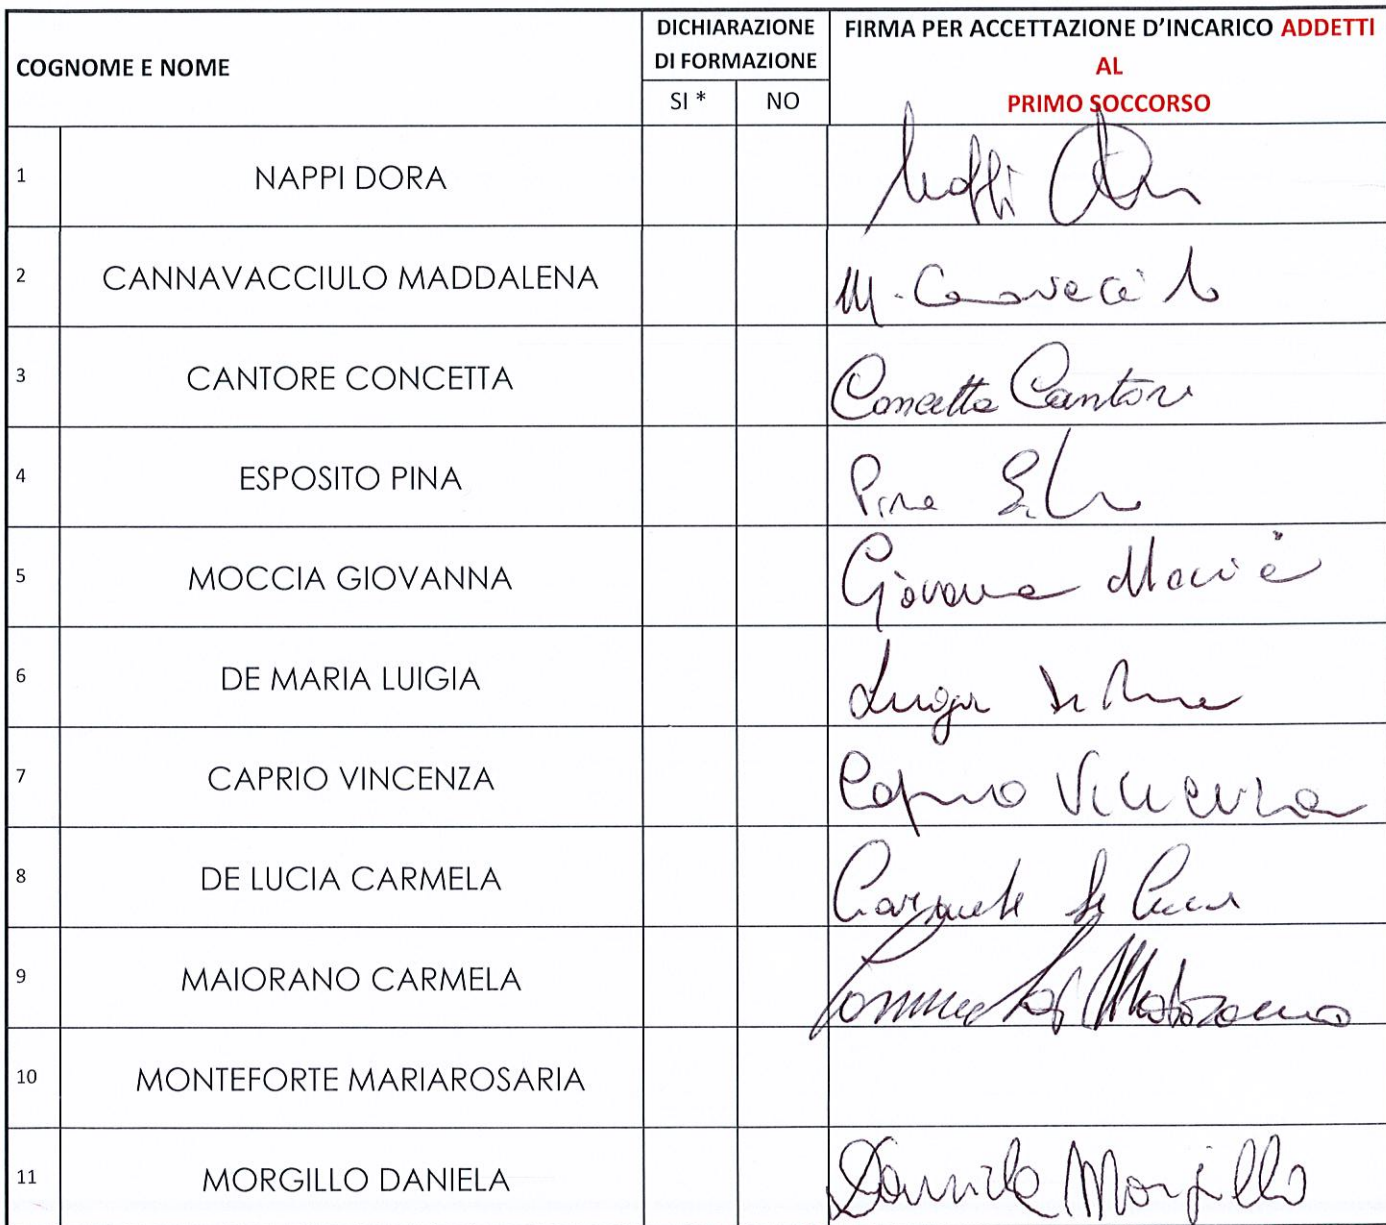 COGNOME E NOME
DICHIARAZIONE
DI FORMAZIONE
SI *
NO
FIRMA PER ACCETTAZIONE D'INCARICO ADDETTI
AL
PRIMO SOCCORSO
1 NAPPI DORA Nappi
2 CANNAVACCIULO MADDALENA M.
3 CANTORE CONCETTA Concetta Cantore
4 ESPOSITO PINA Pina
5 MOCCIA GIOVANNA Giovanna Moccia
6 DE MARIA LUIGIA Luigia De
7 CAPRIO VINCENZA Caprio Vincenza
8 DE LUCIA CARMELA Carmela De Lucia
9 MAIORANO CARMELA
10 MONTEFORTE MARIAROSARIA
11 MORGILLO DANIELA Daniela Morgillo